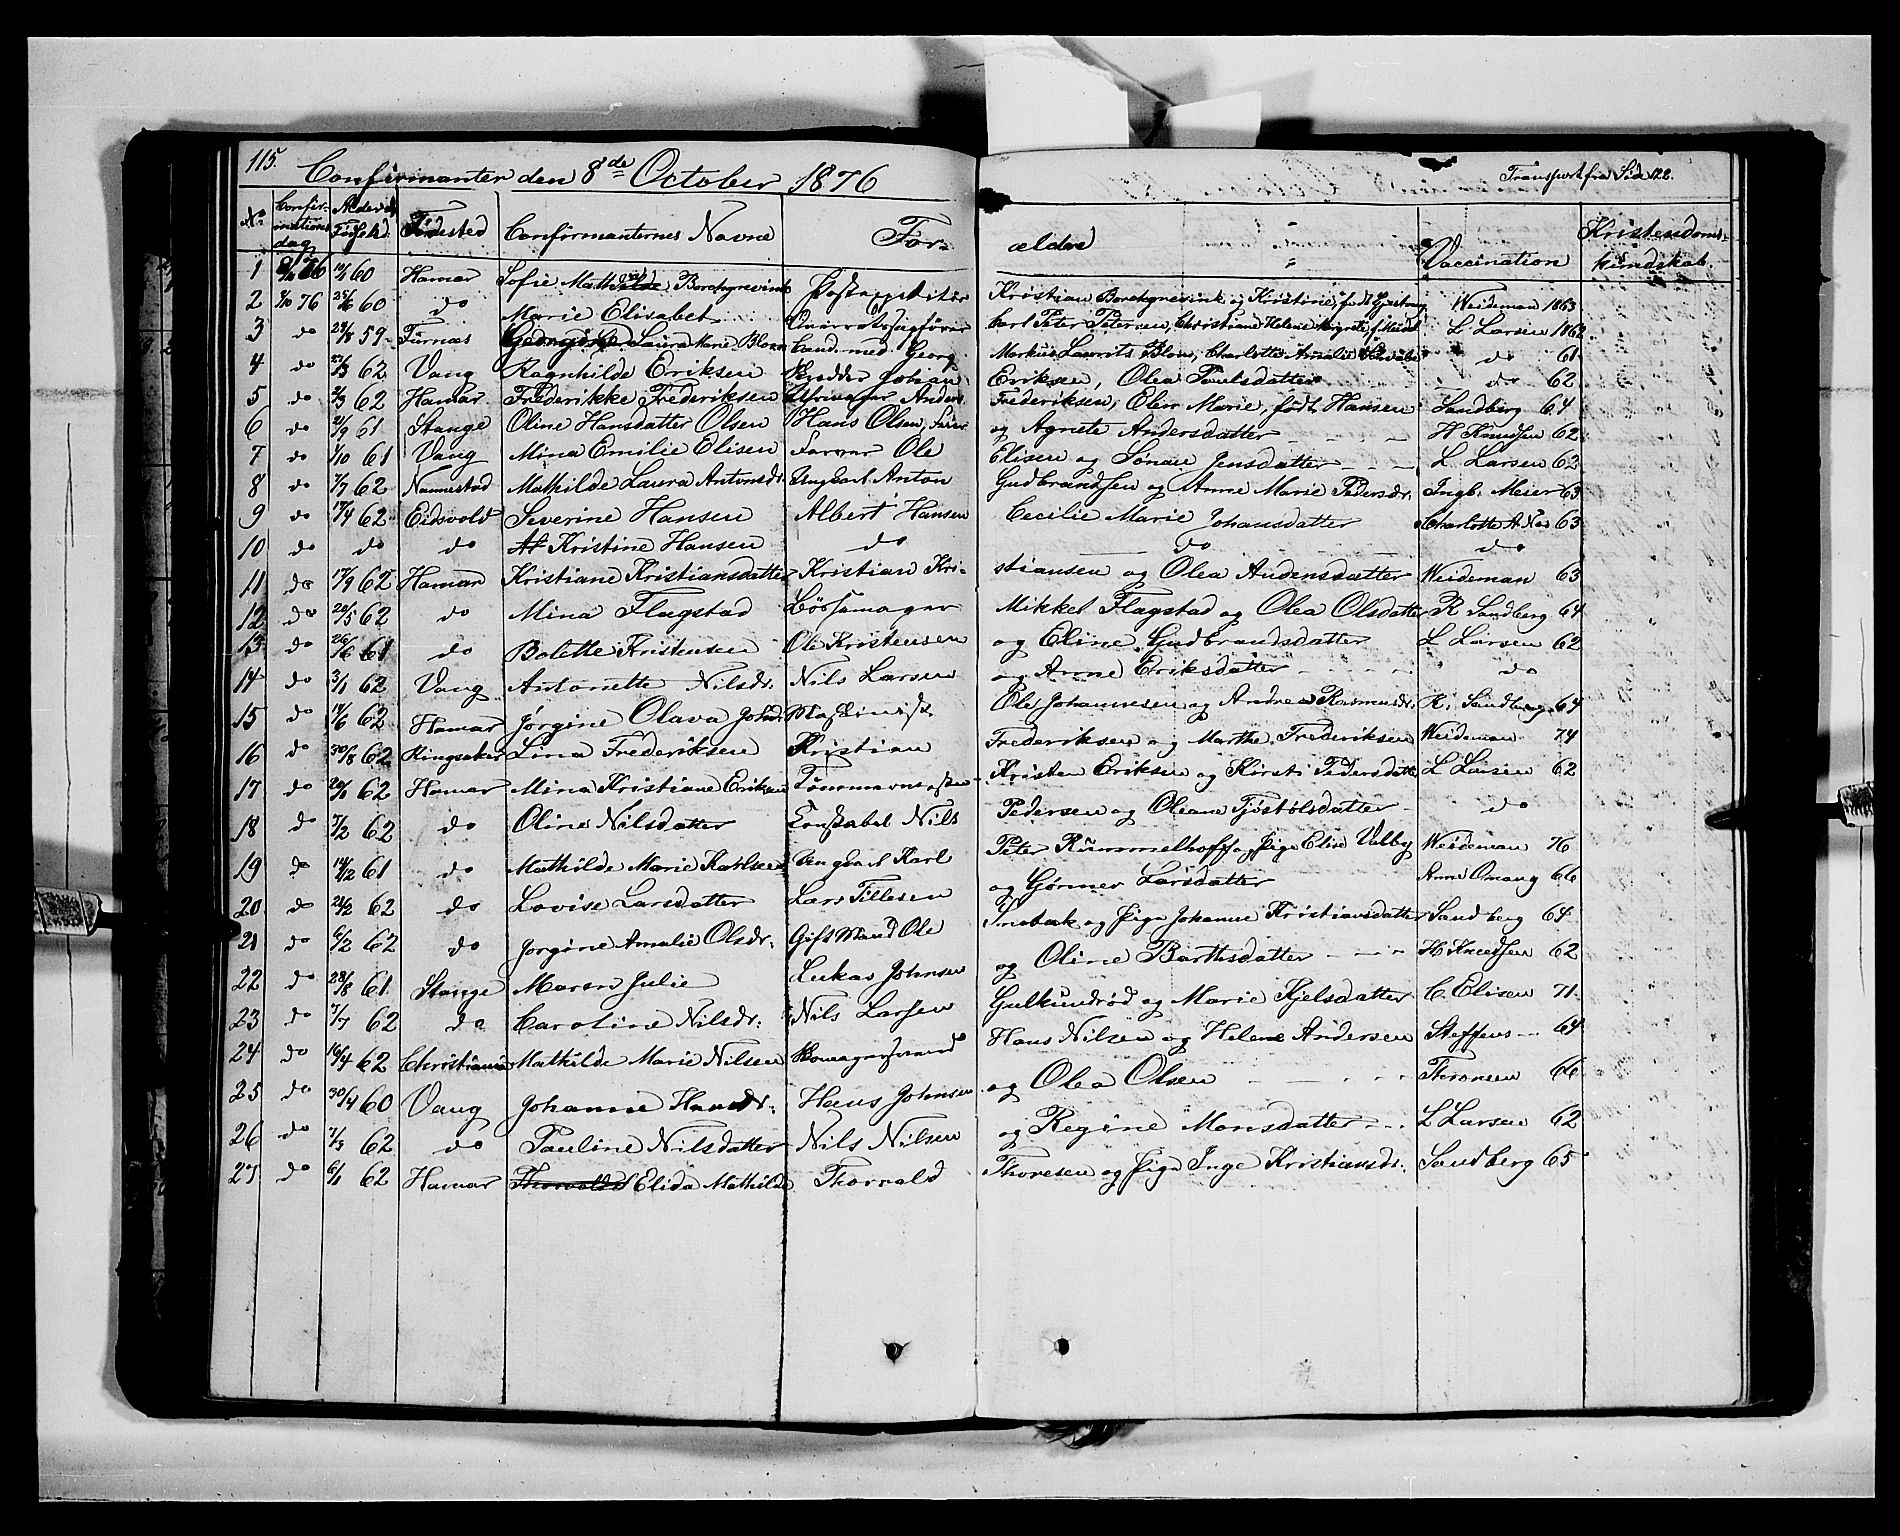 115.
Confirmanter den 8de October 1876
Transport fra Side 122.
No Confirmations dag Alder og Fødsels d. Fødested Confirmanternes Navne For- ældre Vaccination Kristendoms- kundskab
1 8/10 76 60 Hamar Sofie Mathilde Borchgrevink Postexpeditør Kristian Borchgrevink og Kristine, født Weideman 1863
2 8/10 76 25/6 60 do Marie Elisabet Overretssagfører Carl Peter Petersen, Christiane Helene L. Larsen 1862
3 do 24/8 59 Furnæs Laura Marie Blom Cand. med. Georg Markus Laurits Blom, Charlotte Amalie do 61
4 do 23/3 62 Vang Ragnhilde Eriksen Johan Eriksen, Olea Paulsdatter do 62
5 do 2/3 62 Hamar Frederikke Frederiksen Anders Frederiksen, Olea Marie, født Hansen Sandberg 64
6 do 2/9 61 Stange Oline Hansdatter Olsen Hans Olsen, og Agnete Andersdatter H Knudsen 62
7 do 1/10 61 Vang Mina Emilie Elisen Farver Ole Elisen og Jensdatter L. Larsen 62
8 do 7/7 62 Nannestad Mathilde Laura Antonsdr. Ungkarl Anton Gudbrandsen og Anne Marie Pedersdr. Ingb. Meier 63
9 do 17/4 62 Eidsvold Severine Hansen Albert Hansen Cecilie Marie Johansdatter Charlotte A. 63
10 do do do Kristine Hansen do do do
11 do 17/9 62 Hamar Kristiane Kristiansdatter Kristian Kri- stiansen og Olea Andersdatter Weideman 63
12 do 20/5 62 do Mina Flagstad Børsemager Mikkel Flagstad og Olea Olsdatter R Sandberg 64
13 do 26/6 61 do Bolette Kristensen Ole Kristensen og Eline Gudbrandsdatter L Larsen 62
14 do 3/1 62 Vang Antonette Nilsdr. Nils Larsen og Anne Eriksdatter do
15 do 14/6 62 Hamar Jørgine Olava Johd. Maskinist Ole Johannesen og Andrea Rasmusdr. R. Sandberg 64
16 do 30/8 62 Ringsaker Lina Frederiksen Kristian Frederiksen og Marthe Frederiksen Weideman 74
17 do 20/1 62 Hamar Mina Kristiane Eriksen Kristen Eriksen og Kirsti Pedersdatter L Larsen 62
18 do 7/2 62 do Oline Nilsdatter Konstabel Nils Pedersen og Oleane Tjøstølsdatter do
19 do 14/2 61 do Mathilde Marie Karlsen Ungkarl Karl Peter Rummelhoff og Pige Elise Valby Weideman 76
20 do 24/2 62 do Lovise Larsdatter Lars Tillesen og Larsdatter Anne Omang 66
21 do 6/2 62 do Jørgine Amalie Olsdr. Gift Mand Ole og Pige Johanne Kristiansdatter Sandberg 64
22 do 28/8 61 Stange Maren Julie Lukas Johnsen og Oline Barthsdatter H Knudsen 62
23 do 7/7 62 do Caroline Nilsdr. Nils Larsen Gulkundrød og Marie Kjelsdatter C. Elisen 71.
24 do 16/4 62 Christiania Mathilde Marie Nilsen Hans Nilsen og Helene Andersen Steffens 64
25 do 30/4 60 Vang Johanne Hansdr. Hans Johnsen og Olea Olsen Thronsen 66
26 do 7/3 62 do Pauline Nilsdatter Nils Nilsen og Regine Monsdatter L Larsen 62
27 do 6/1 62 Hamar Thorvalda Elida Mathilde Thorvald Thoresen og Pige Inge Kristiansdr. Sandberg 65